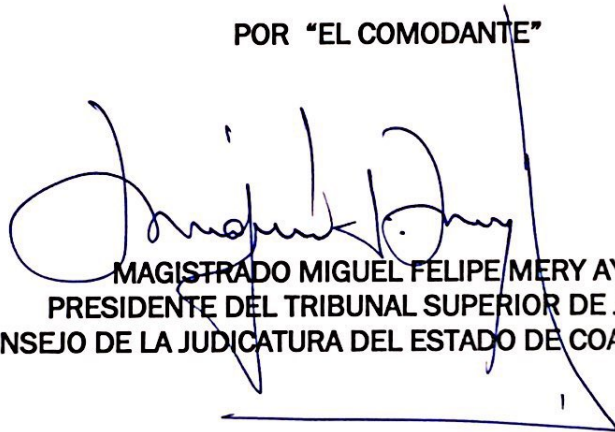 POR “EL COMODANTE”
MAGISTRADO MIGUEL FELIPE MERY AY
PRESIDENTE DEL TRIBUNAL SUPERIOR DE J
NSEJO DE LA JUDICATURA DEL ESTADO DE COA